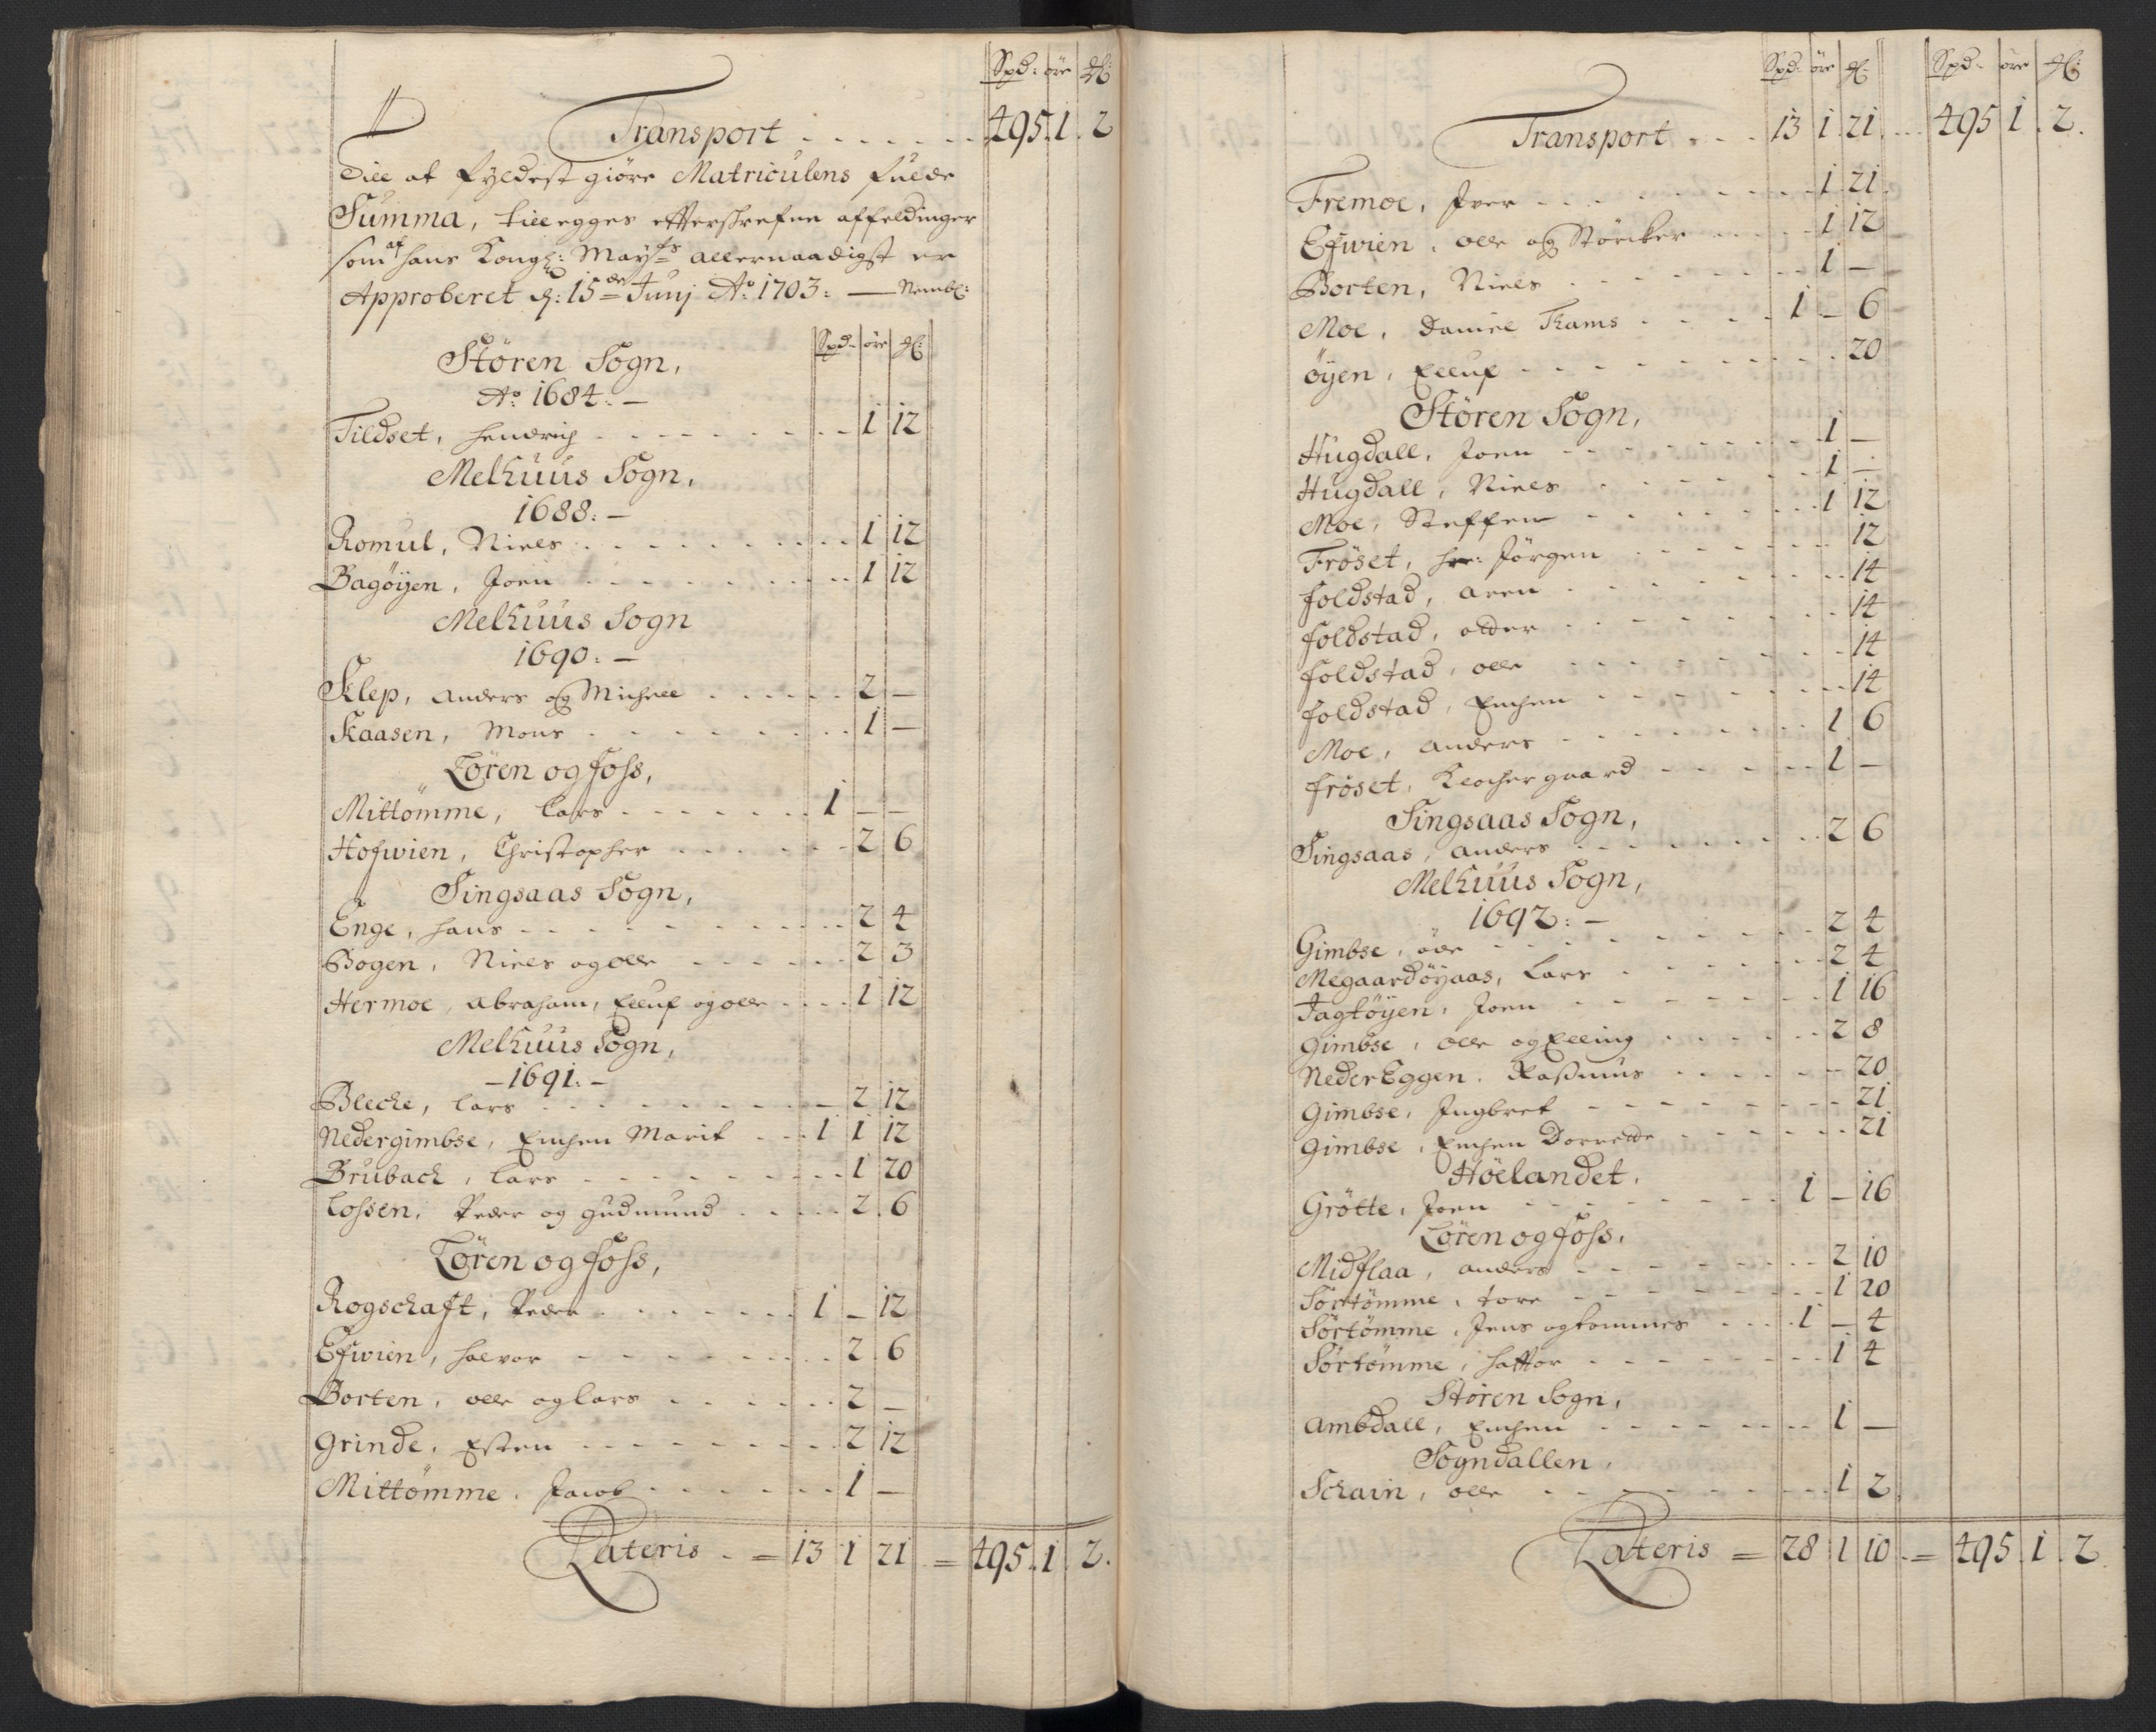 Spd: öre ₰:
Transport . . . . . . . 495. 1. 2
Till at fyldest giöre Matriculens fulde
Summa, tillegges effterschrefne affeldinger
som af hans Kongl: Mayts allernaadigst er
Approberet d: 15de Junj Ao: 1703: — Nembl:
Spd- öre ₰:
Stören Sogn,
Ao: 1684: —
Tildset, Hendrich - - - - 1 12
Melhuus Sogn,
1688: —
Romul, Niels - - - - 1 12
Bagöyen, Joen - - - - 1 12
Melhuus Sogn
1690: —
Klep, Anders og Michell - - - - 2 —
Kaasen, Mons - - - - 1 —
Hören og foss,
Mittömme, Lars - - - - 1 — —
Hofwien, Christopher - - - - 2 6
Singsaas Sogn,
Enge, Hans - - - - 2 4
Bogen, Niels og Olle - - - - 2 3
Hermoe, Abraham, Elluf og Olle - - - - 1 12
Melhuus Sogn,
— 1691: —
Bleche, Lars - - - - 2 12
Nedergimbse, Enchen Marit - - - 1 1 12
Brubach, Lars - - - - 1 20
Lossen, Peder og Gudmund - - - - 2 6
Hören og foss,
Rogschaft, Peder - - - - 1 — 12
Efwien, Halvor - - - - 2 6
Borten, Olle og Lars - - - - 2 —
Grinde, Esten - - - - 2 12
Mittömme, Jacob - - - - 1 —
Lateris - = 13 1 21 = 495. 1. 2.
Spd: öre ₰: Spd- öre ₰:
Transport - - - 13 1 21 - - 495 1. 2.
Fremoe, Iver - - - - 1 21
Efwien, Olle og Störcker - - - - 1 12
Borten, Niels - - - - 1 —
Moe, Daniel Kams - - - - 1 — 6
Öyen, Elluf - - - - 20
Stören Sogn,
Hugdall, Joen - - - - 1 —
Hugdall, Niels - - - - 1 —
Moe, Steffen - - - - 1 12
Fröset, Hr: Jörgen - - - - 12
Foldstad, Aren - - - - 14
Foldstad, Otter - - - - 14
Foldstad, Olle - - - - 14
Foldstad, Enchen - - - - 14
Moe, Anders - - - - 1 6
Fröset, Klochergaard - - - - 1 —
Singsaas Sogn,
Singsaas, Anders - - - - 2 6
Melhuus Sogn,
1692: —
Gimbse, - - - - 2 4
Megaardöyaas, Lars - - - - 2 4
Jagtöyen, Joen - - - - 1 16
Gimbse, Olle og Elling - - - - 2 8
Neder Eggen, Rasmus - - - - 20
Gimbse, Ingbret - - - - 21
Gimbse, Enchen Dorrette - - - - 21
Höelandet,
Grötte, Joen - - - - 1 — 16
Hören og foss,
Midflaa, Anders - - - - 2 10
Sörtömme, Tore - - - - 1 20
Sörtömme, Jens og Tommes - - - - 1 — 4
Sörtömme, - - - - 1 4
Stören Sogn,
Ambdall, Enchen - - - - 1 —
Sogndallen,
Schain, Olle - - - - 1 2
Lateris = 28 1 10 - = 495. 1. 2